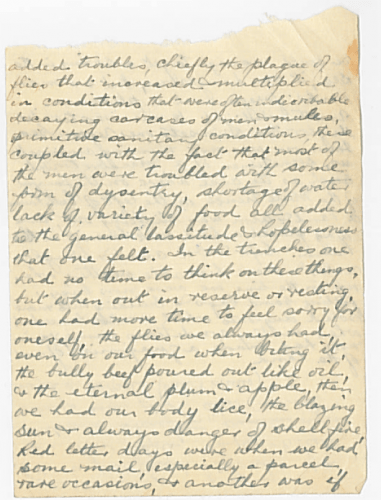 added troubles, chiefly the plague of
flies that increased & multiplied
in conditions that were often indescribable
decaying carcases of men & mules,
primitive sanitary conditions, these
coupled with the fact that most of
the men were troubled with some
form of dysentry, shortage of water
lack of variety of food all added
to the general lassitude & hopelessness
that one felt. In the trenches one
had no time to think on these things,
but when out in reserve or resting
one had more time to feel sorry for
oneself, the flies we always had
even on our food when biting it,
the bully beef poured out like oil,
& the eternal plum & apple, then
we had our body lice, the blazing
sun & always danger of shell fire
Red letter days were when we had
some mail, especially a parcel,
rare occasions, & another was if